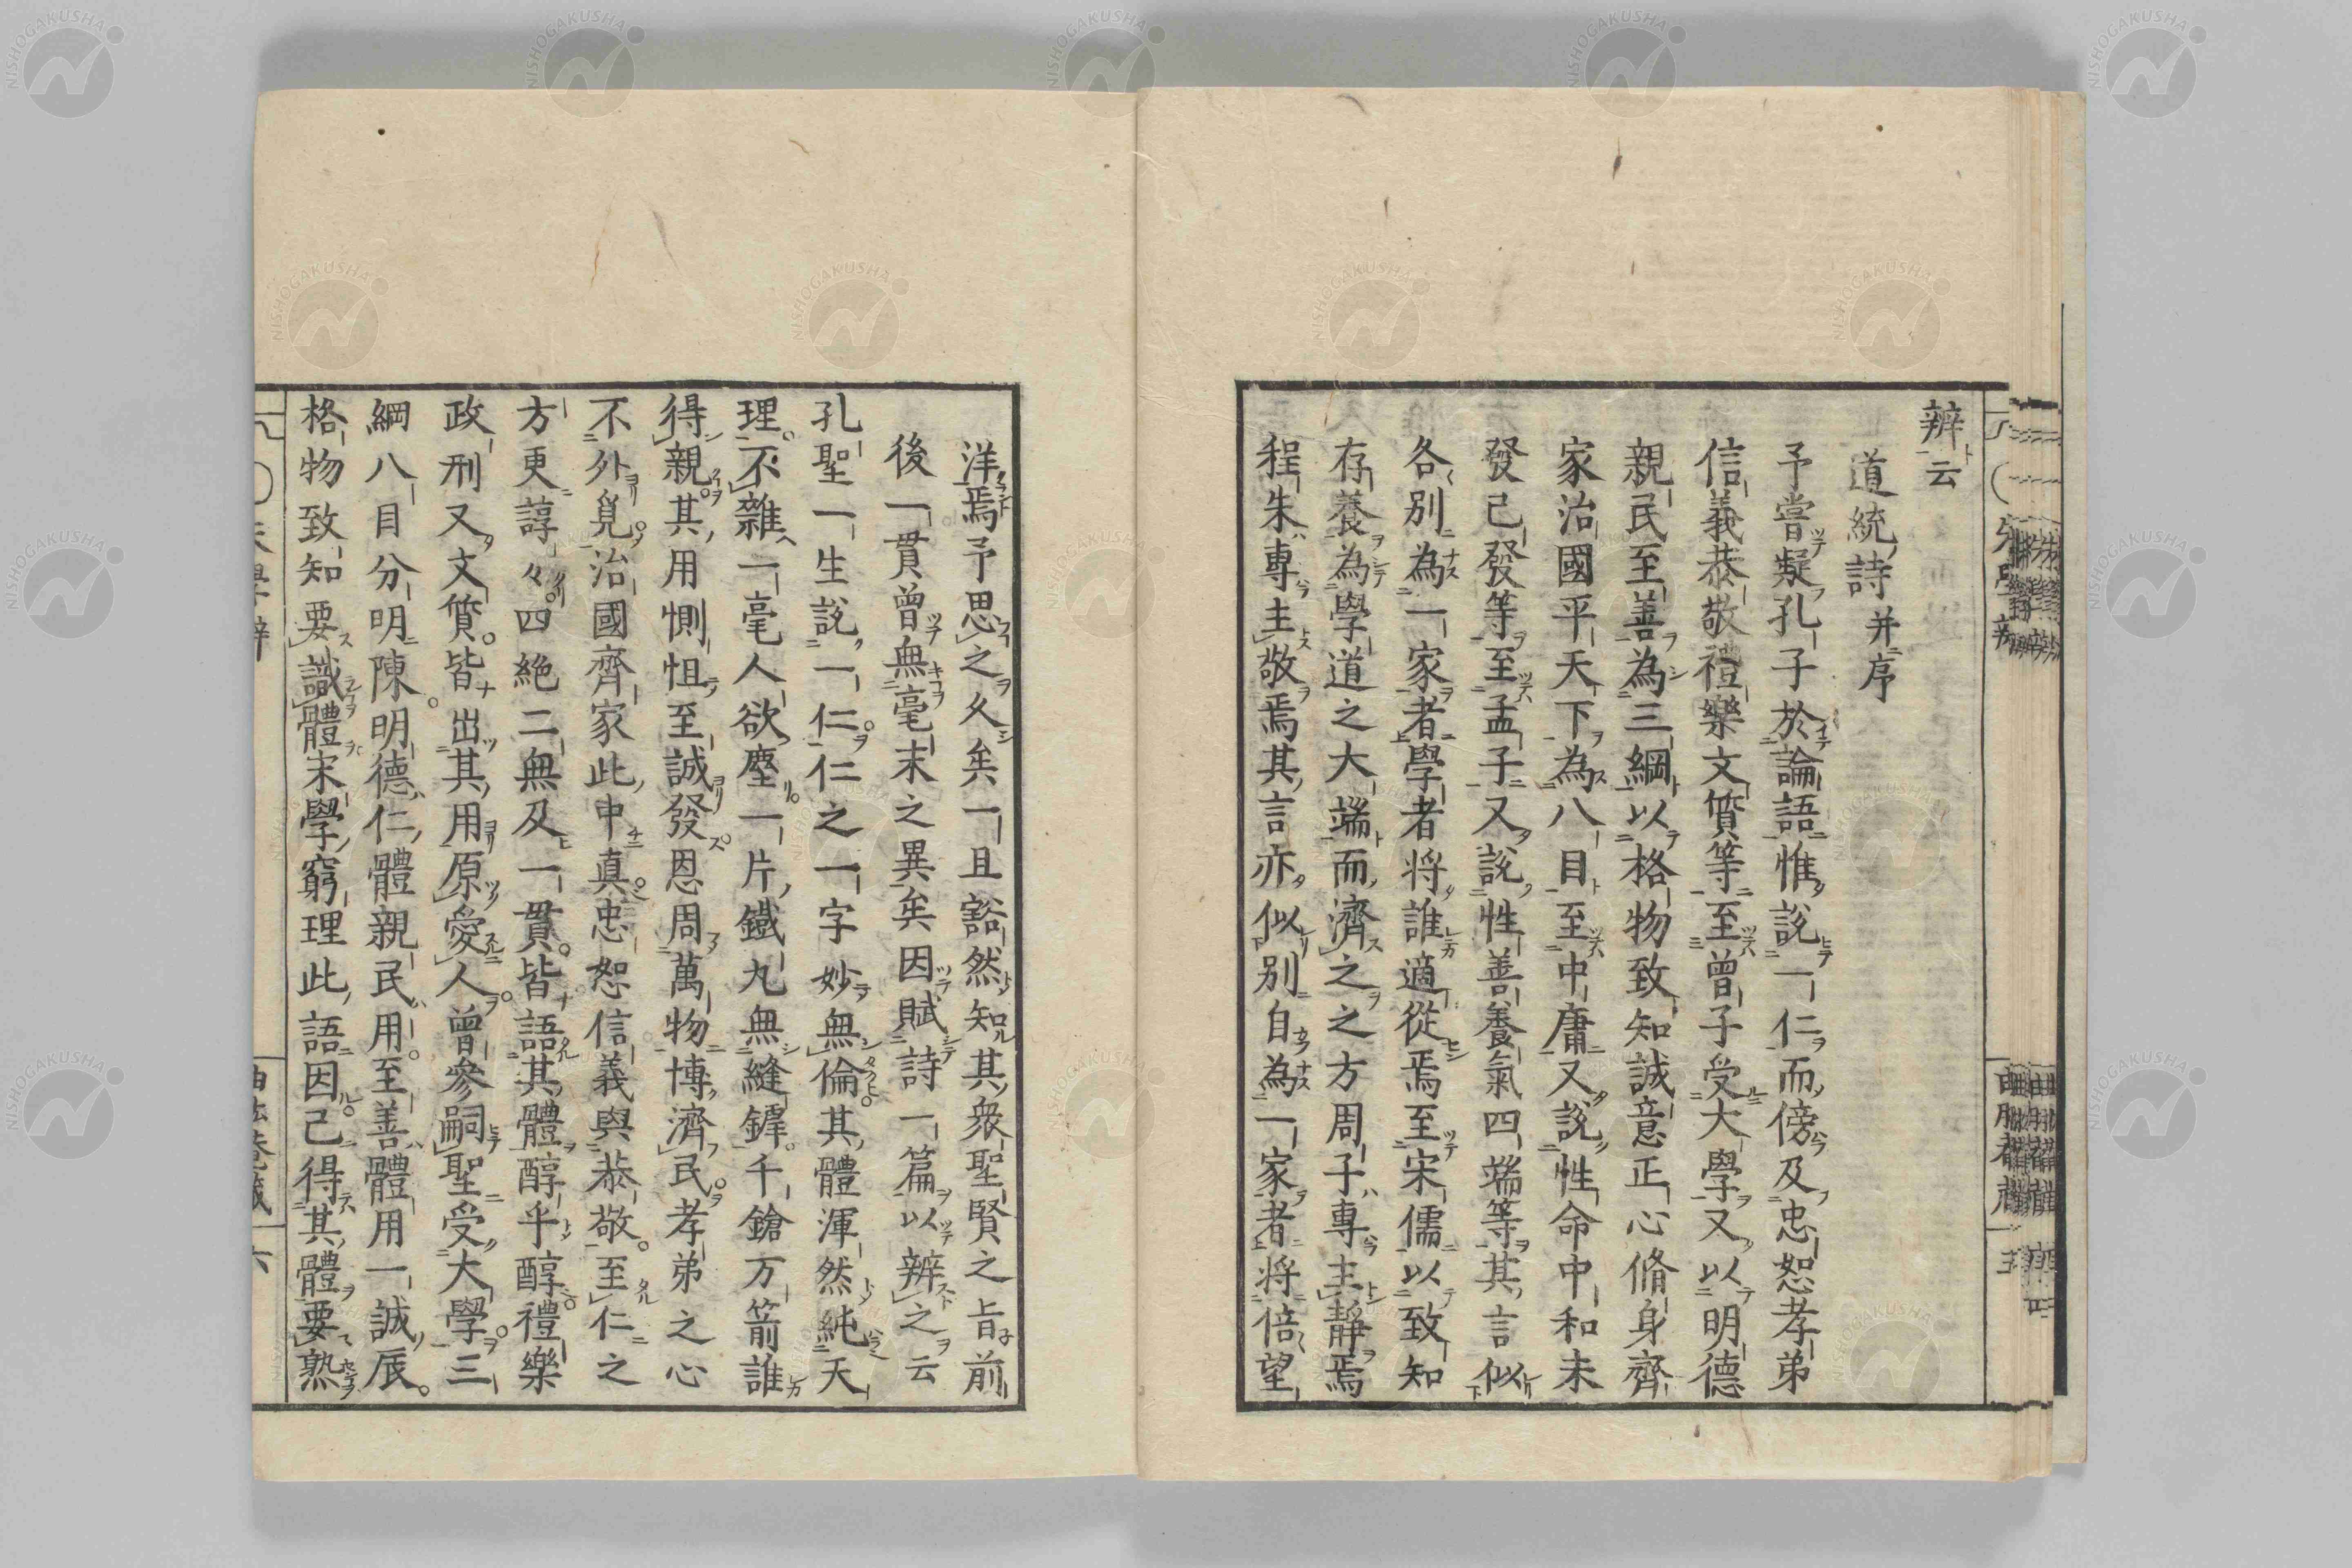 辨云
道統詩并序
予嘗疑孔子於論語惟說一仁而傍及忠恕孝弟
信義恭敬禮樂文質等至曾子受大學又以明德
親民至善為三綱以格物致知誠意正心脩身齊
家治國平天下為八目至中庸又說性命中和未
發已發等至孟子又說性善養氣四端等其言似
各別為一家者學者將誰適從焉至宋儒以致知
存養為學道之大端而濟之之方周子專主靜焉
程朱專主敬焉其言亦似別自為一家者將倍望
洋焉予思之久矣一旦豁然知其衆聖賢之旨前
後一貫曾無毫末之異矣因賦詩一篇以辨之云
孔聖一生說一仁仁之一字妙無倫其體渾然純天
理不雜一毫人欲塵一片鐵丸無縫罅千鎗万箭誰
得親其用惻怛至誠發恩周萬物博濟民孝弟之心
不外覓治國齊家此中真忠恕信義與恭敬至仁之
方更諄々四絕二無及一貫皆語其體醇乎醇禮樂
政刑又文質皆出其用原愛人曾參嗣聖受大學三
綱八目分明陳明德仁體親民用至善體用一誠辰
格物致知要識體宋學窮理此語因己得其體要熟
六
NISHOGAKUSHA